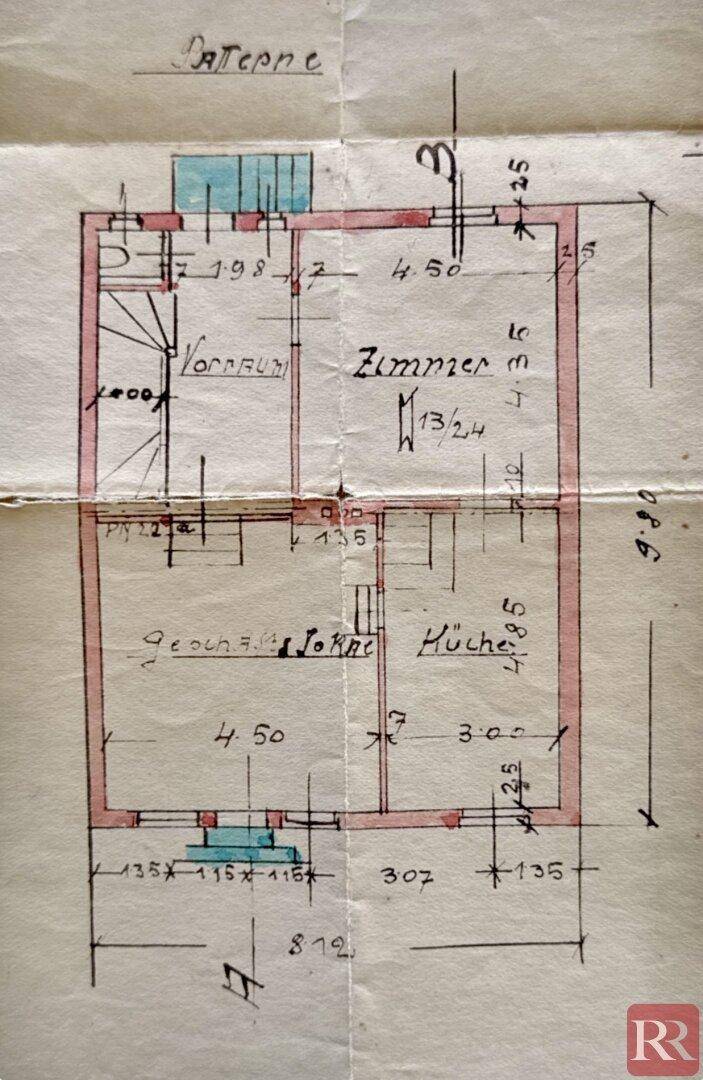 Parterre
B
25
7 1·98 7 4.50 25
Vorraum
Zimmer
4·35
13/24
10
135
9·80
Geschäftslokal
Küche
4·85
4.50
7
3·00
25
135 115 115 307 135
8·12
A
RR